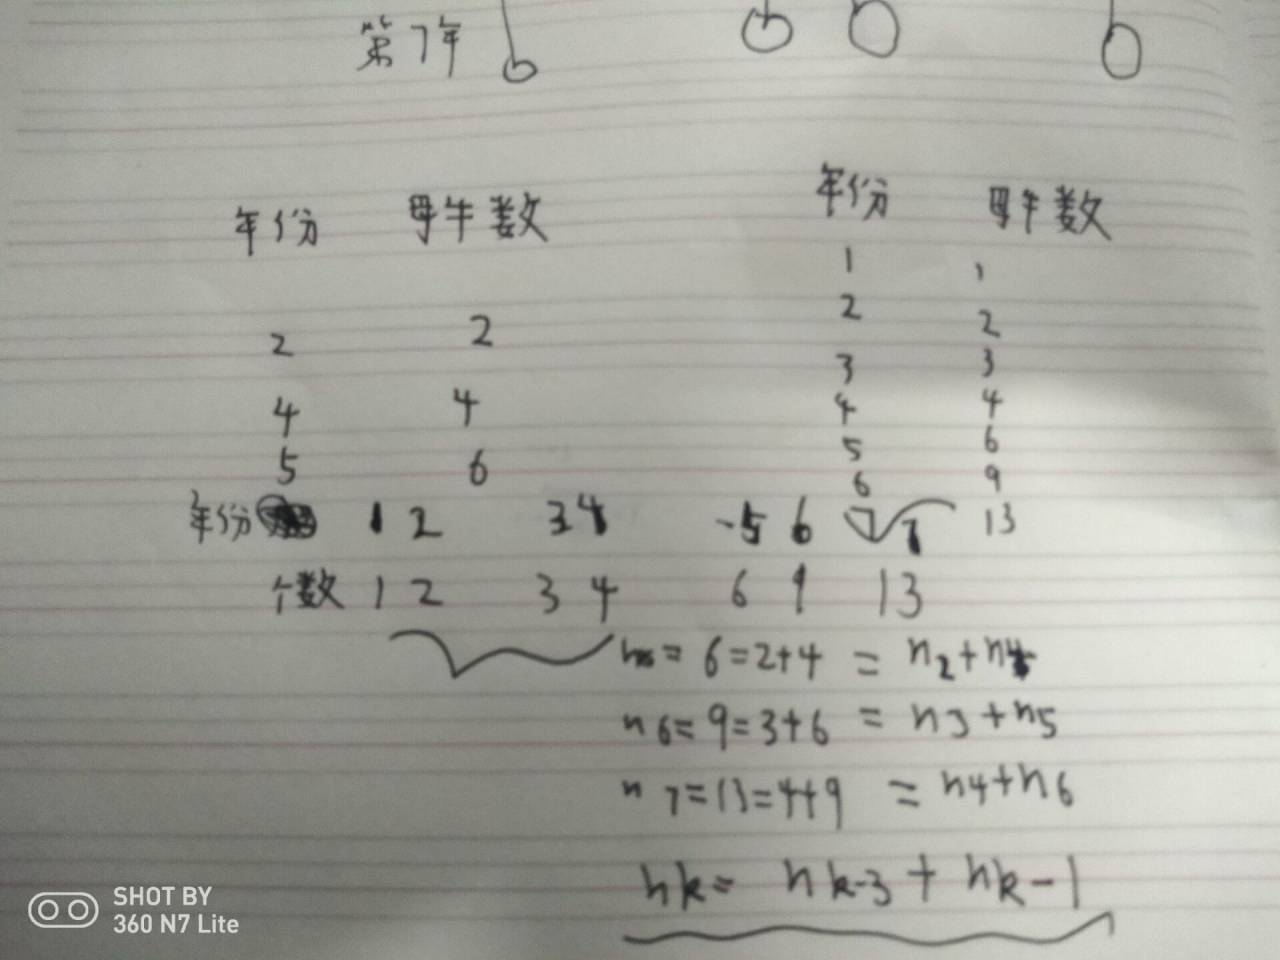 第7年
年份 母牛数 年份 母牛数
1 1
2 2 2 2
3 3
4 4 4 4
5 6
5 6
6 9
年份 1 2 3 4 5 6 7 13
个数 1 2 3 4 6 9 13
n5= 6=2+4 = n2+n4
n6=9=3+6 = n3+n5
n7=13=4+9 = n4+n6
nk= nk-3+nk-1
SHOT BY
360 N7 Lite